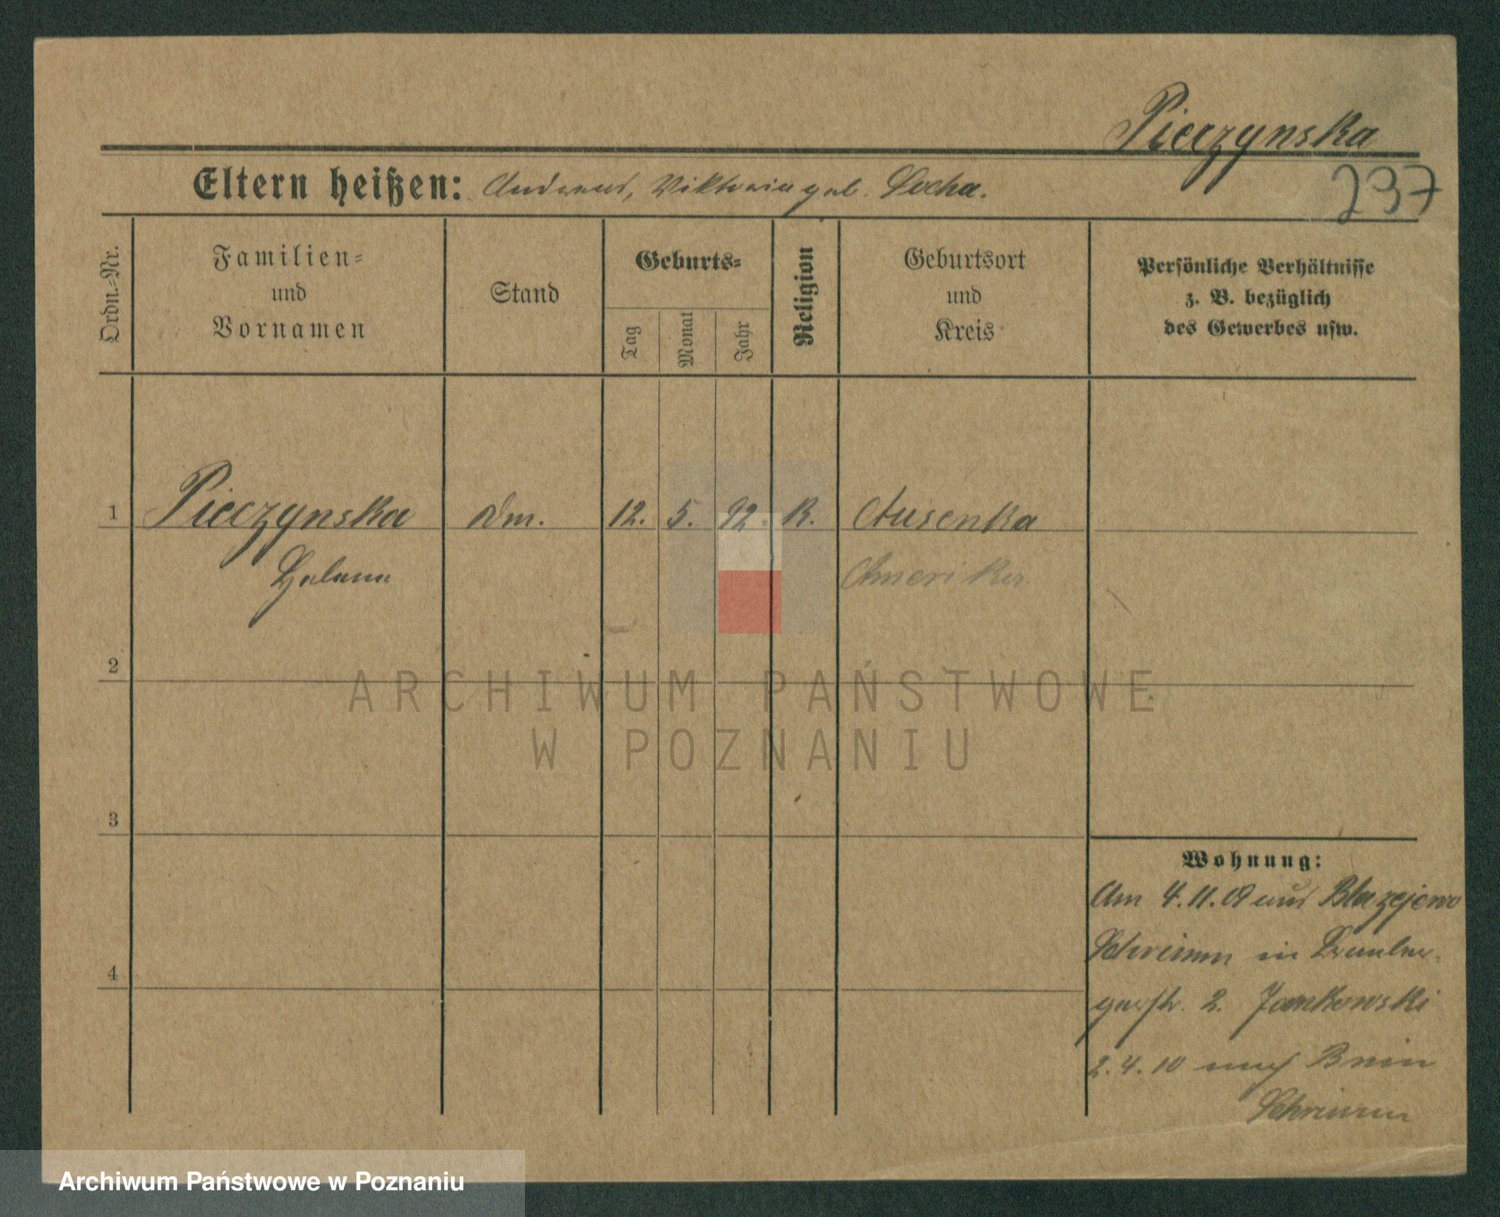 Pieczynska
237
Eltern heißen: Andreas, Viktoria geb. Socha.
Ordn.-Nr.
Familien-
und
Vornamen
Stand
Geburts-
Tag
Monat
Jahr
Religion
Geburtsort
und
Kreis
Persönliche Verhältnisse
z. B. bezüglich
des Gewerbes usw.
1 Pieczynska Dm. 12. 5. 92. K. Ausenka
Helene Amerika
2
ARCHIWUM PAŃSTWOWE
W POZNANIU
3
Wohnung:
Am 4.11.09 aus Blazejewo
Schrimm in
2. Jankowski
4
2.4.10 nach Bnin
Schrimm
Archiwum Państwowe w Poznaniu